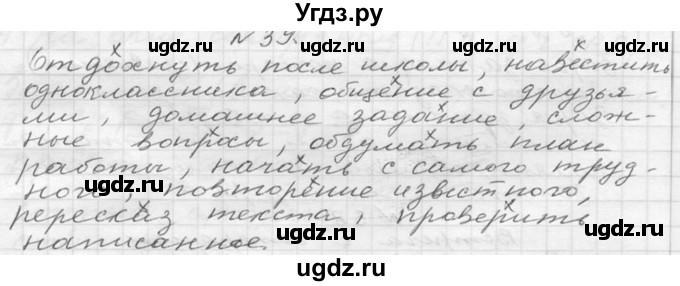 Угдз.ру
N 39.
Отдохнуть после школы, навестить
одноклассника, общение с друзья-
ми, домашнее задание, слож-
ные вопросы, обдумать план
работы, начать с самого труд-
ного, повторение известного,
пересказ текста, проверить
написанное.
ugdz.ru ugdz.ru ugdz.ru
ugdz.ru ugdz.ru
ugdz.ru ugdz.ru ugdz.ru
ugdz.ru ugdz.ru
ugdz.ru ugdz.ru ugdz.ru
ugdz.ru